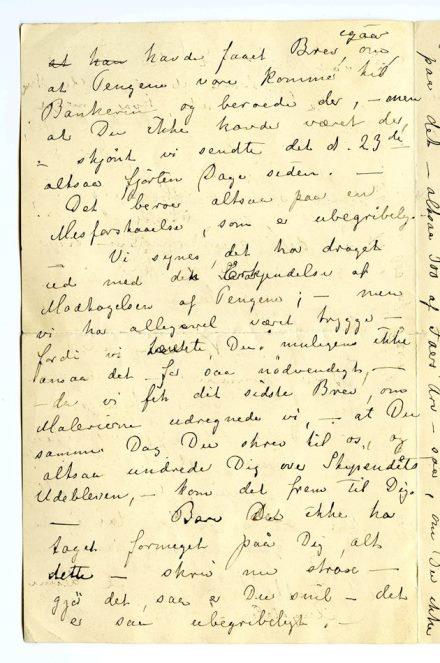 at han havde faaet Brev igaar om
at Pengene vare kommne til
Bankeren og beroede der, – men
at Du ikke havde været der,
– skjönt vi sendte det d. 23de
altsaa fjorten Dage siden. –
Det beroer altsaa paa en
Misforstaaelse, som er ubegribelig.
Vi synes, det har draget
ud med din af
Modtagelsen af Pengene; – men
vi ha allegevel været trygge –
fordi vi tænkte, Du muligens ikke
ansaa det for saa nödvendigt, –
– da vi fik dit sidste Brev, om
Malerierne udregnede vi, – at Du
samme Dag Du skrev til os, og
altsaa undrede Dig over Stipendiets
Udebliven, – kom det frem til Dig.
– Bare Det ikke ha
taget formeget paa Dig, alt
dette – skriv nu strax –
gjö det, saa er Du snil – det
er saa ubegribeligt. –
paa det – altsaa 300 af Faers Arv – saa, om Du ikke